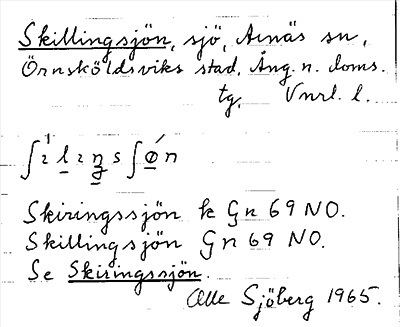 Skillingsjön, sjö, Arnäs sn,
Örnsköldsviks stad, Ång. n. doms.
tg, Vnrl. l.
Skiringssjön k Gn 69 NO.
Skillingsjön Gn 69 NO.
Se Skiringssjön.
Olle Sjöberg 1965.